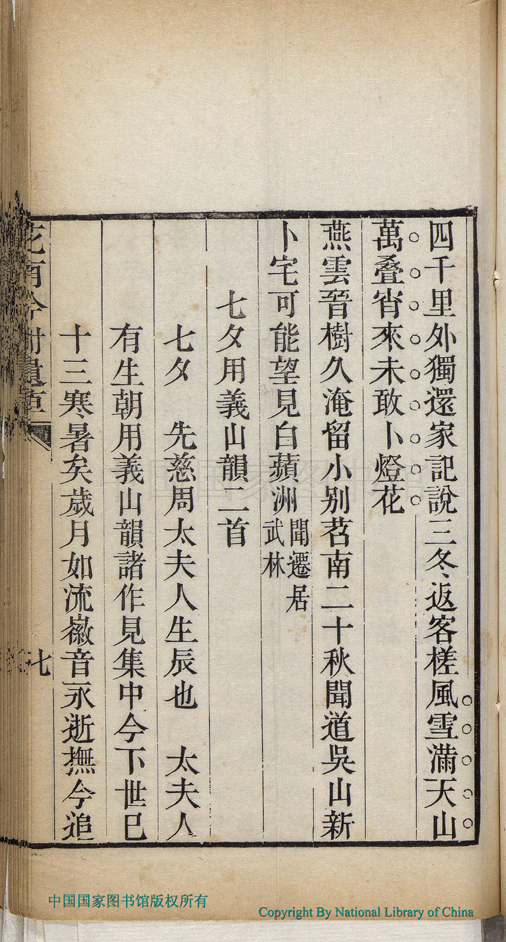 四千里外獨還家記說三冬返客槎風雪滿天山
萬叠宵來未敢卜燈花
燕雲晉樹久淹留小别苕南二十秋聞道吳山新
卜宅可能望見白蘋洲聞遷居武林
七夕用義山韻二首
七夕 先慈周太夫人生辰也 太夫人
有生朝用義山韻諸作見集中今下世巳
十三寒暑矣歲月如流徽音永逝撫今追
七
中国国家图书馆版权所有
Copyright By National Library of China